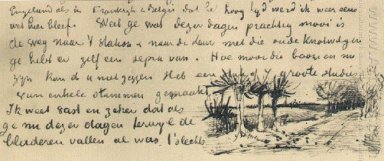 Engeland als in Frankrijk & België dat ze
wel hier bleef. Wel ge was dezer dagen prachtig mooi is
de weg naar 't station & naar de door met die oude knotwilgen
ge hebt er zelf een sepia van. Hoe mooi die boomen nu
zijn kan ik u niet zeggen. Heb een groote studies
van enkele stammen gemaakt
Ik weet vast en zeker dat als
ge nu dezer dagen terwijl de
bladeren vallen al was 't slechts